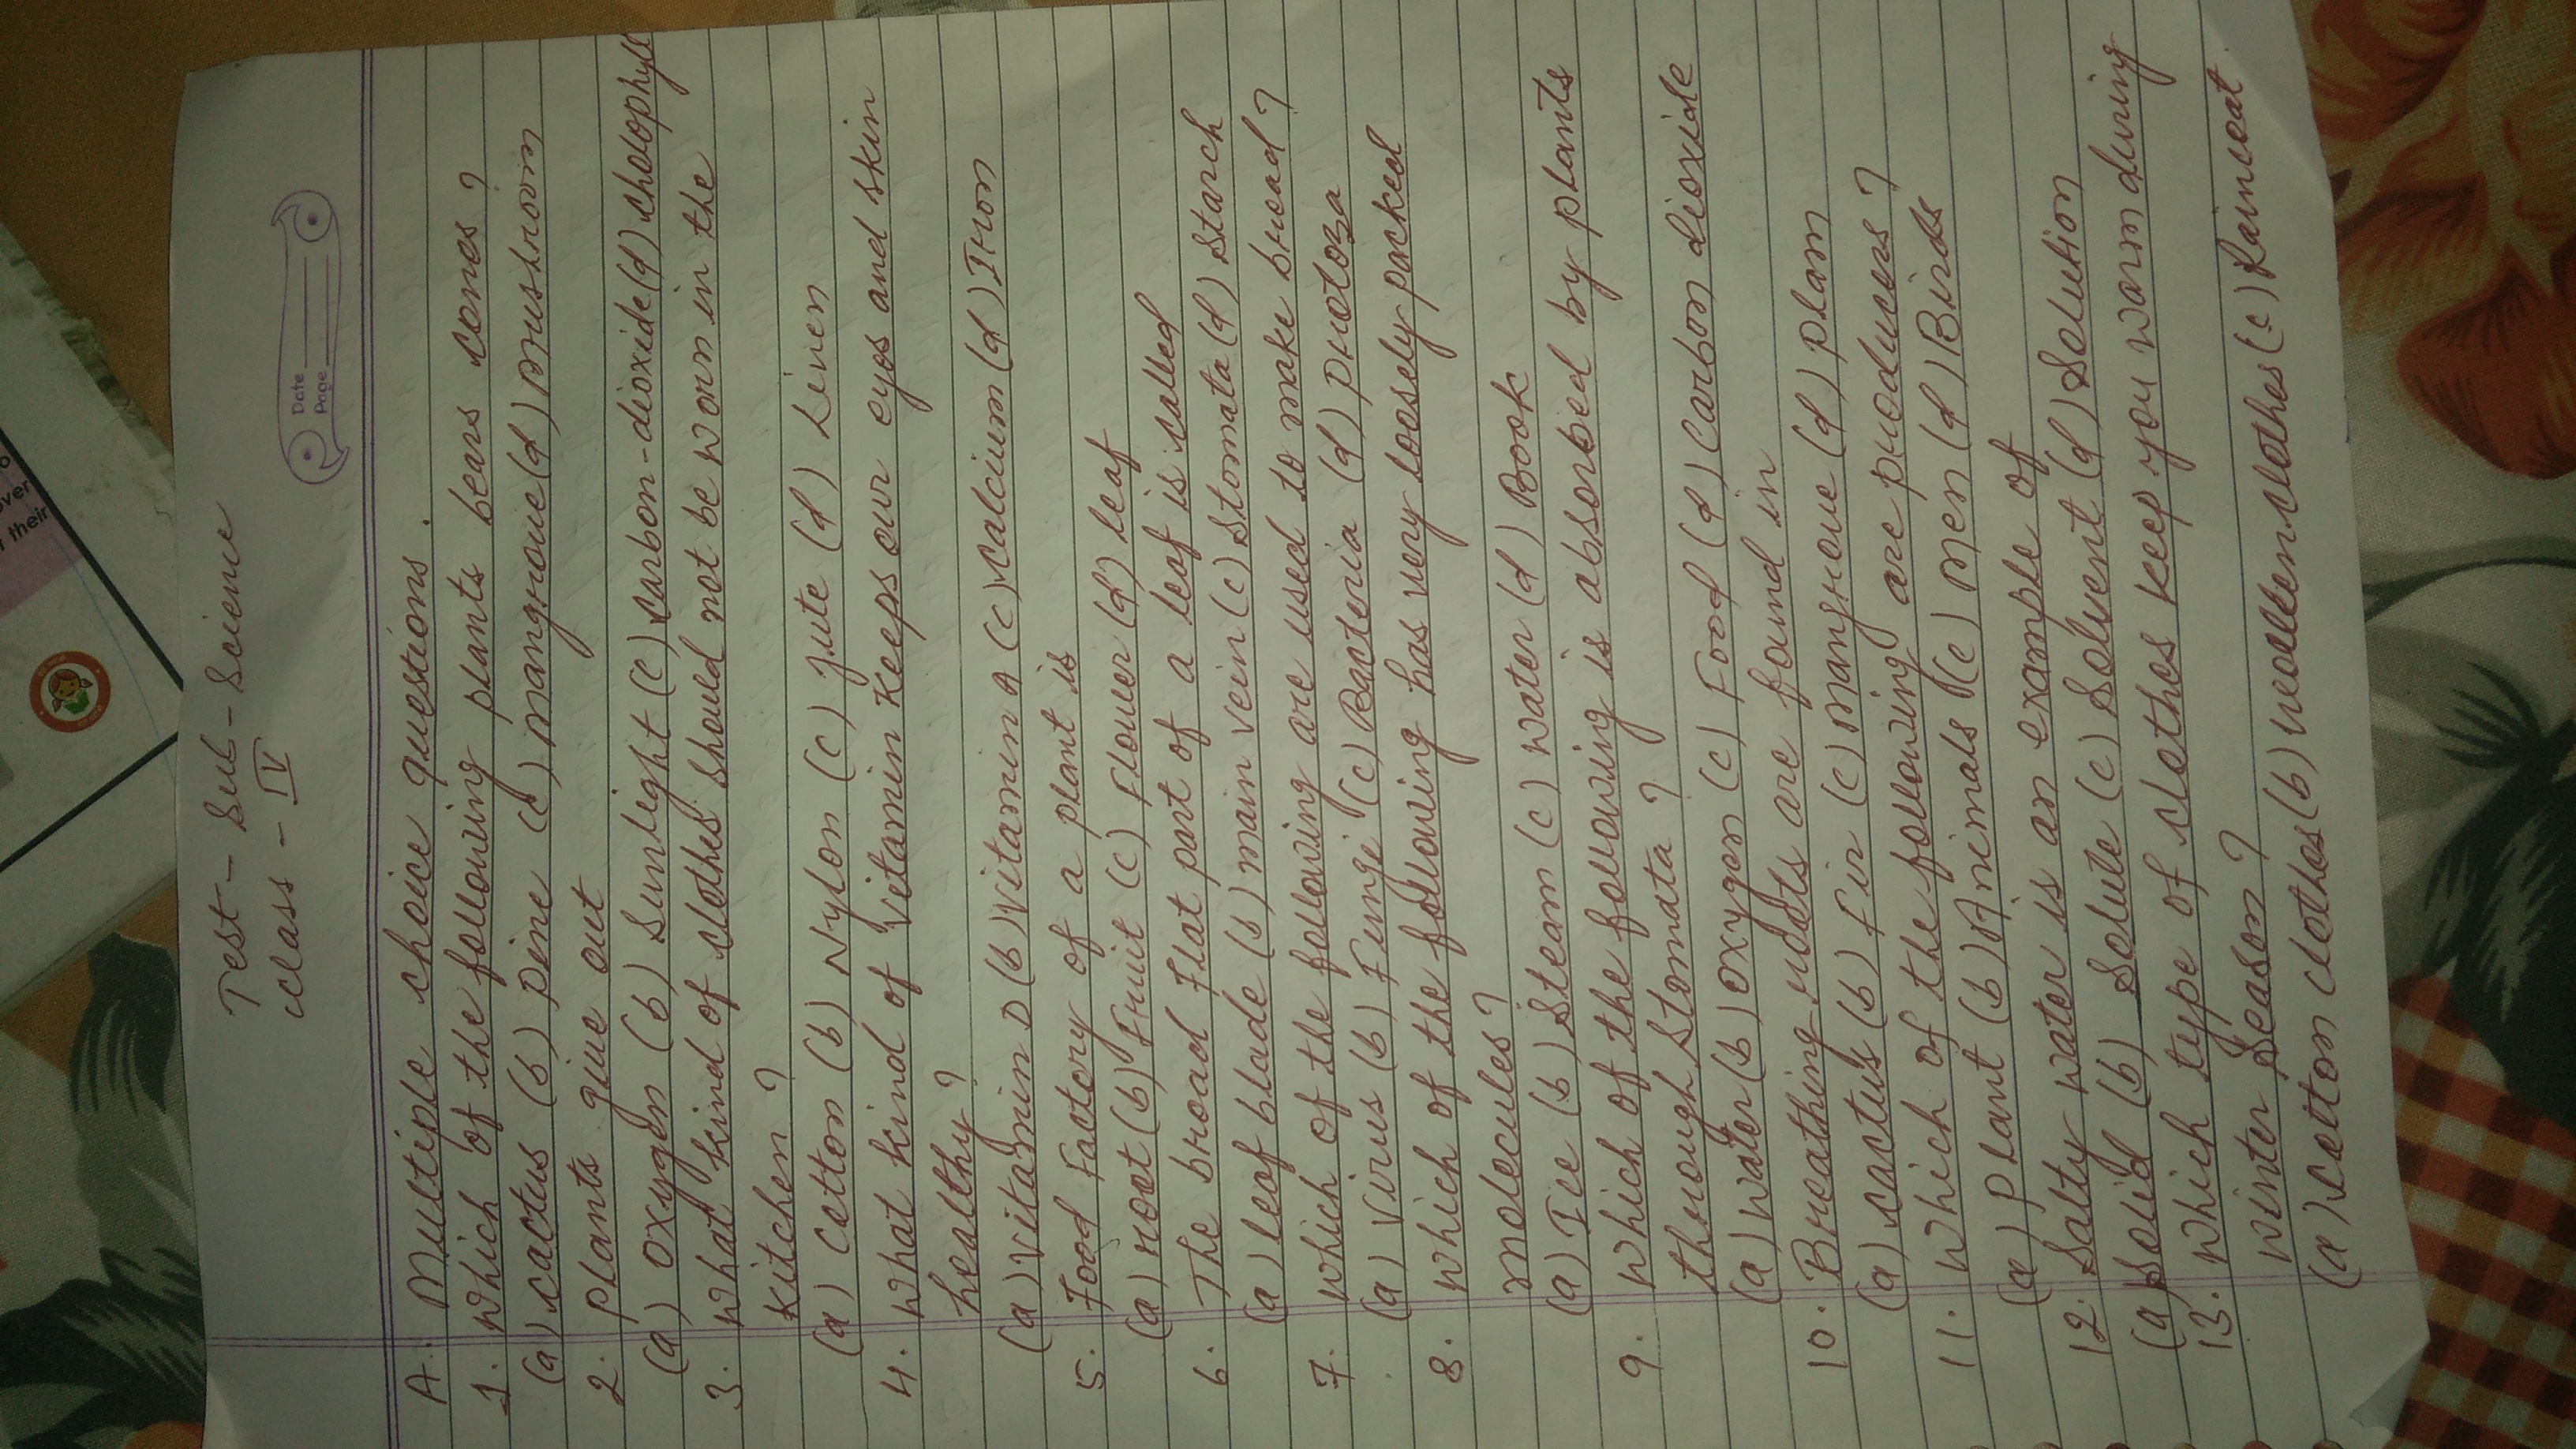 Test - Sub - Science
Class - IV
Date
Page
A. Multiple choice questions.
1. Which of the following plants bears cones?
(a) cactus (b) pine (c) mangrove (d) mushroom
2. Plants give out
(a) oxygen (b) sunlight (c) carbon-dioxide (d) chlorophyll
3. What kind of clothes should not be worn in the
kitchen?
(a) Cotton (b) Nylon (c) Jute (d) Linen
4. What kind of Vitamin keeps our eyes and skin
healthy?
(a) Vitamin D (b) Vitamin A (c) calcium (d) Iron
5. Food Factory of a plant is
(a) root (b) Fruit (c) Flower (d) leaf
6. The broad Flat part of a leaf is called
(a) leaf blade (b) main vein (c) stomata (d) starch
7. Which of the following are used to make bread?
(a) Virus (b) Fungi (c) Bacteria (d) Protoza
8. Which of the following has very loosely packed
molecules?
(a) Ice (b) Steam (c) water (d) Book
9. Which of the following is absorbed by plants
through stomata?
(a) water (b) oxygen (c) Food (d) carbon dioxide
10. Breathing roots are found in
(a) cactus (b) Fir (c) mangrove (d) plam
11. Which of the following are producers?
(a) Plant (b) Animals (c) Men (d) Birds
12. Salty water is an example of
(a) solid (b) Solute (c) Solvent (d) Solution
13. Which type of clothes keep you warm during
winter Season?
(a) cotton clothes (b) woollen clothes (c) Raincoat
over
their